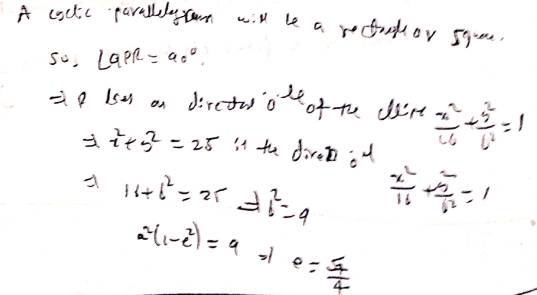 A cyclic parallelogram will be a rectangle or square.
so, ∠QPR = 90°.
⇒ P lies on director o^le of the ellipse x²/16 + y²/b² = 1
⇒ x² + y² = 25 is the director o^le x²/16 + y²/b² = 1
⇒ 16 + b² = 25 ⇒ b² = 9
a²(1-e²) = 9 ⇒ e = √7/4